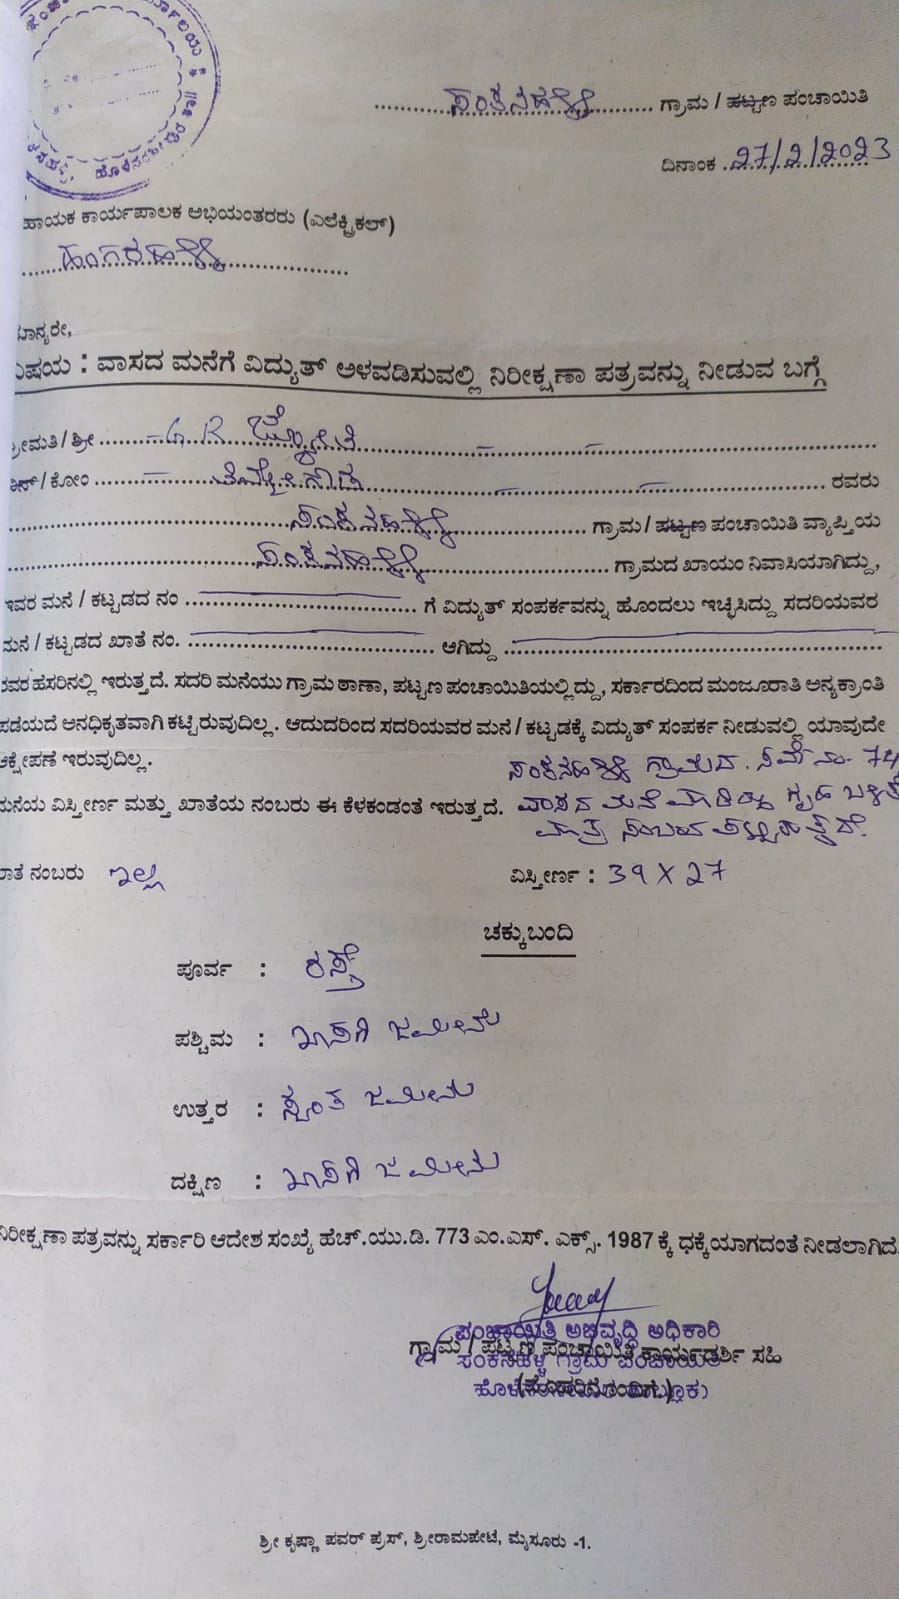 ಸಂಕನಹಳ್ಳಿ ಗ್ರಾಮ / ಪಟ್ಟಣ ಪಂಚಾಯಿತಿ
ದಿನಾಂಕ 27/2/2023
ಹಾಯಕ ಕಾರ್ಯಪಾಲಕ ಅಭಿಯಂತರರು (ಎಲೆಕ್ಟ್ರಿಕಲ್)
ಹಂಗರಹಳ್ಳಿ
ಮಾನ್ಯರೇ,
ವಿಷಯ : ವಾಸದ ಮನೆಗೆ ವಿದ್ಯುತ್ ಅಳವಡಿಸುವಲ್ಲಿ ನಿರೀಕ್ಷಣಾ ಪತ್ರವನ್ನು ನೀಡುವ ಬಗ್ಗೆ
ಶ್ರೀಮತಿ / ಶ್ರೀ G R ಜ್ಯೋತಿ
ಬಿನ್ / ಕೋಂ ತಿಮ್ಮೇಗೌಡ ರವರು
ಸಂಕನಹಳ್ಳಿ ಗ್ರಾಮ / ಪಟ್ಟಣ ಪಂಚಾಯಿತಿ ವ್ಯಾಪ್ತಿಯ
ಸಂಕನಹಳ್ಳಿ ಗ್ರಾಮದ ಖಾಯಂ ನಿವಾಸಿಯಾಗಿದ್ದು,
ಇವರ ಮನೆ / ಕಟ್ಟಡದ ನಂ ಗೆ ವಿದ್ಯುತ್ ಸಂಪರ್ಕವನ್ನು ಹೊಂದಲು ಇಚ್ಛಿಸಿದ್ದು ಸದರಿಯವರ
ಮನೆ / ಕಟ್ಟಡದ ಖಾತೆ ನಂ. ಆಗಿದ್ದು
ರವರ ಹಸರಿನಲ್ಲಿ ಇರುತ್ತದೆ. ಸದರಿ ಮನೆಯು ಗ್ರಾಮ ಠಾಣಾ, ಪಟ್ಟಣ ಪಂಚಾಯಿತಿಯಲ್ಲಿದ್ದು, ಸರ್ಕಾರದಿಂದ ಮಂಜೂರಾತಿ ಅನ್ಯಕ್ರಾಂತಿ
ಪಡೆಯದೆ ಅನಧಿಕೃತವಾಗಿ ಕಟ್ಟಿರುವುದಿಲ್ಲ. ಆದುದರಿಂದ ಸದರಿಯವರ ಮನೆ / ಕಟ್ಟಡಕ್ಕೆ ವಿದ್ಯುತ್ ಸಂಪರ್ಕ ನೀಡುವಲ್ಲಿ ಯಾವುದೇ
ಆಕ್ಷೇಪಣೆ ಇರುವುದಿಲ್ಲ.
ಸಂಕನಹಳ್ಳಿ ಗ್ರಾಮದ ಸರ್ವೆ ನಂ. 74
ಮನೆಯ ವಿಸ್ತೀರ್ಣ ಮತ್ತು ಖಾತೆಯ ನಂಬರು ಈ ಕೆಳಕಂಡಂತೆ ಇರುತ್ತದೆ. ವಾಸದ ಮನೆ ಗೃಹ ಬಳಕೆ
ಮಾತ್ರ
ಖಾತೆ ನಂಬರು ಇಲ್ಲ ವಿಸ್ತೀರ್ಣ : 39 X 27
ಚಕ್ಕುಬಂದಿ
ಪೂರ್ವ : ರಸ್ತೆ
ಪಶ್ಚಿಮ : ಖಾಸಗಿ ಜಮೀನು
ಉತ್ತರ : ಸ್ವಂತ ಜಮೀನು
ದಕ್ಷಿಣ : ಖಾಸಗಿ ಜಮೀನು
ನಿರೀಕ್ಷಣಾ ಪತ್ರವನ್ನು ಸರ್ಕಾರಿ ಆದೇಶ ಸಂಖ್ಯೆ ಹೆಚ್.ಯು.ಡಿ. 773 ಎಂ.ಎಸ್. ಎಕ್ಸ್. 1987 ಕ್ಕೆ ಧಕ್ಕೆಯಾಗದಂತೆ ನೀಡಲಾಗಿದೆ.
ಪಂಚಾಯಿತಿ ಅಭಿವೃದ್ಧಿ ಅಧಿಕಾರಿ
ಗ್ರಾಮ / ಪಟ್ಟಣ ಪಂಚಾಯಿತಿ ಕಾರ್ಯದರ್ಶಿ ಸಹಿ
ಸಂಕನಹಳ್ಳಿ ಗ್ರಾಮ ಪಂಚಾಯಿತಿ
(ಮೊಹರಿನೊಂದಿಗೆ)
ಶ್ರೀ ಕೃಷ್ಣಾ ಪವರ್ ಪ್ರೆಸ್, ಶ್ರೀರಾಮಪೇಟೆ, ಮೈಸೂರು -1.